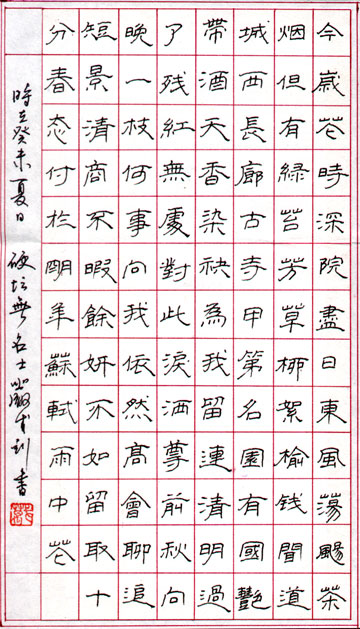 今歲花時深院盡日東風蕩颺茶
烟但有緑苔芳草柳絮榆钱聞道
城西長廊古寺甲第名園有國艷
帶酒天香染袂為我留連清明過
了残紅無處對此淚洒尊前秋向
晚一枝何事向我依然高會聊追
短景清商不暇餘妍不如留取十
分春态付於明年蘇軾雨中花
時在癸未夏日硬坛無名士書